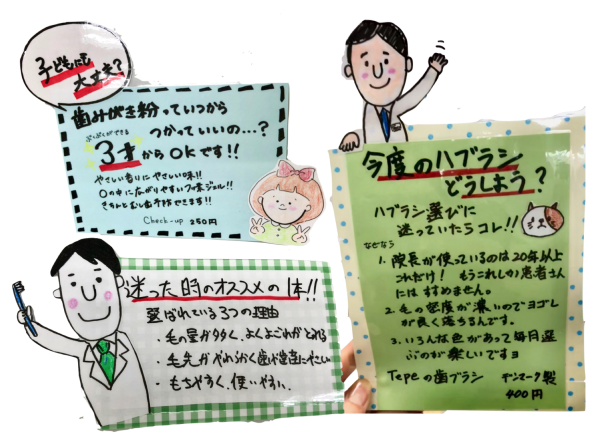 子どもにも
大丈夫?
歯みがき粉っていつから
つかっていいの…?
ぶくぶくができる
3才からOKです!!
やさしい香りにやさしい味!!
口の中に広がりやすいフッ素ジェル!!
きちんとむし歯予防できます!!
Check-up 250円
今度のハブラシ
どうしよう?
ハブラシ選びに
迷っていたらコレ!!
なぜなら
1. 院長が使っているのは20年以上
これだけ! もうこれしか患者さん
にはすすめません。
2. 毛の密度が濃いのでヨゴレ
が良く落ちるんです。
3. いろんな色があって毎日選
ぶのが楽しいですョ
Tepeの歯ブラシ デンマーク製
400円
迷った時のオススメの1本!!
選ばれている3つの理由
・毛の量が多く、よくよごれがとれる
・毛先がやわらかく歯と歯ぐきにやさしい
・もちやすく、使いやすい